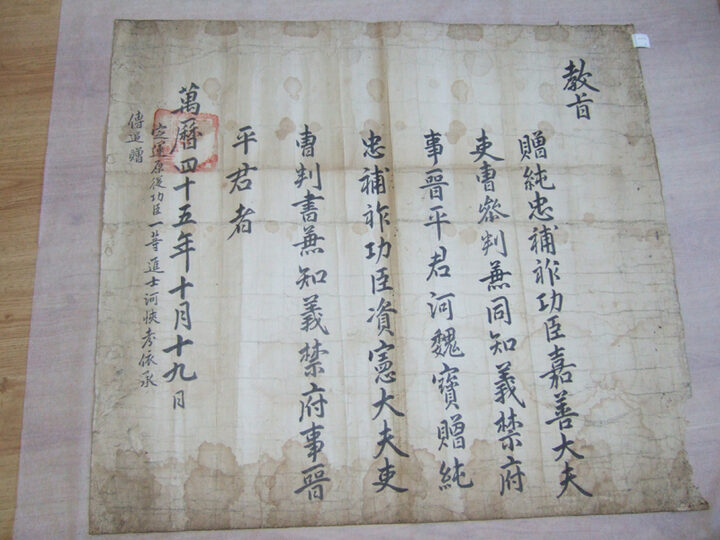 教旨
贈純忠補祚功臣嘉善大夫
吏曹參判兼同知義禁府
事晉平君河魏寶贈純
忠補祚功臣資憲大夫吏
曹判書兼知義禁府事晉
平君者
萬曆四十五年十月十九日
定運原從功臣一等進士河恢孝依承
傳追贈